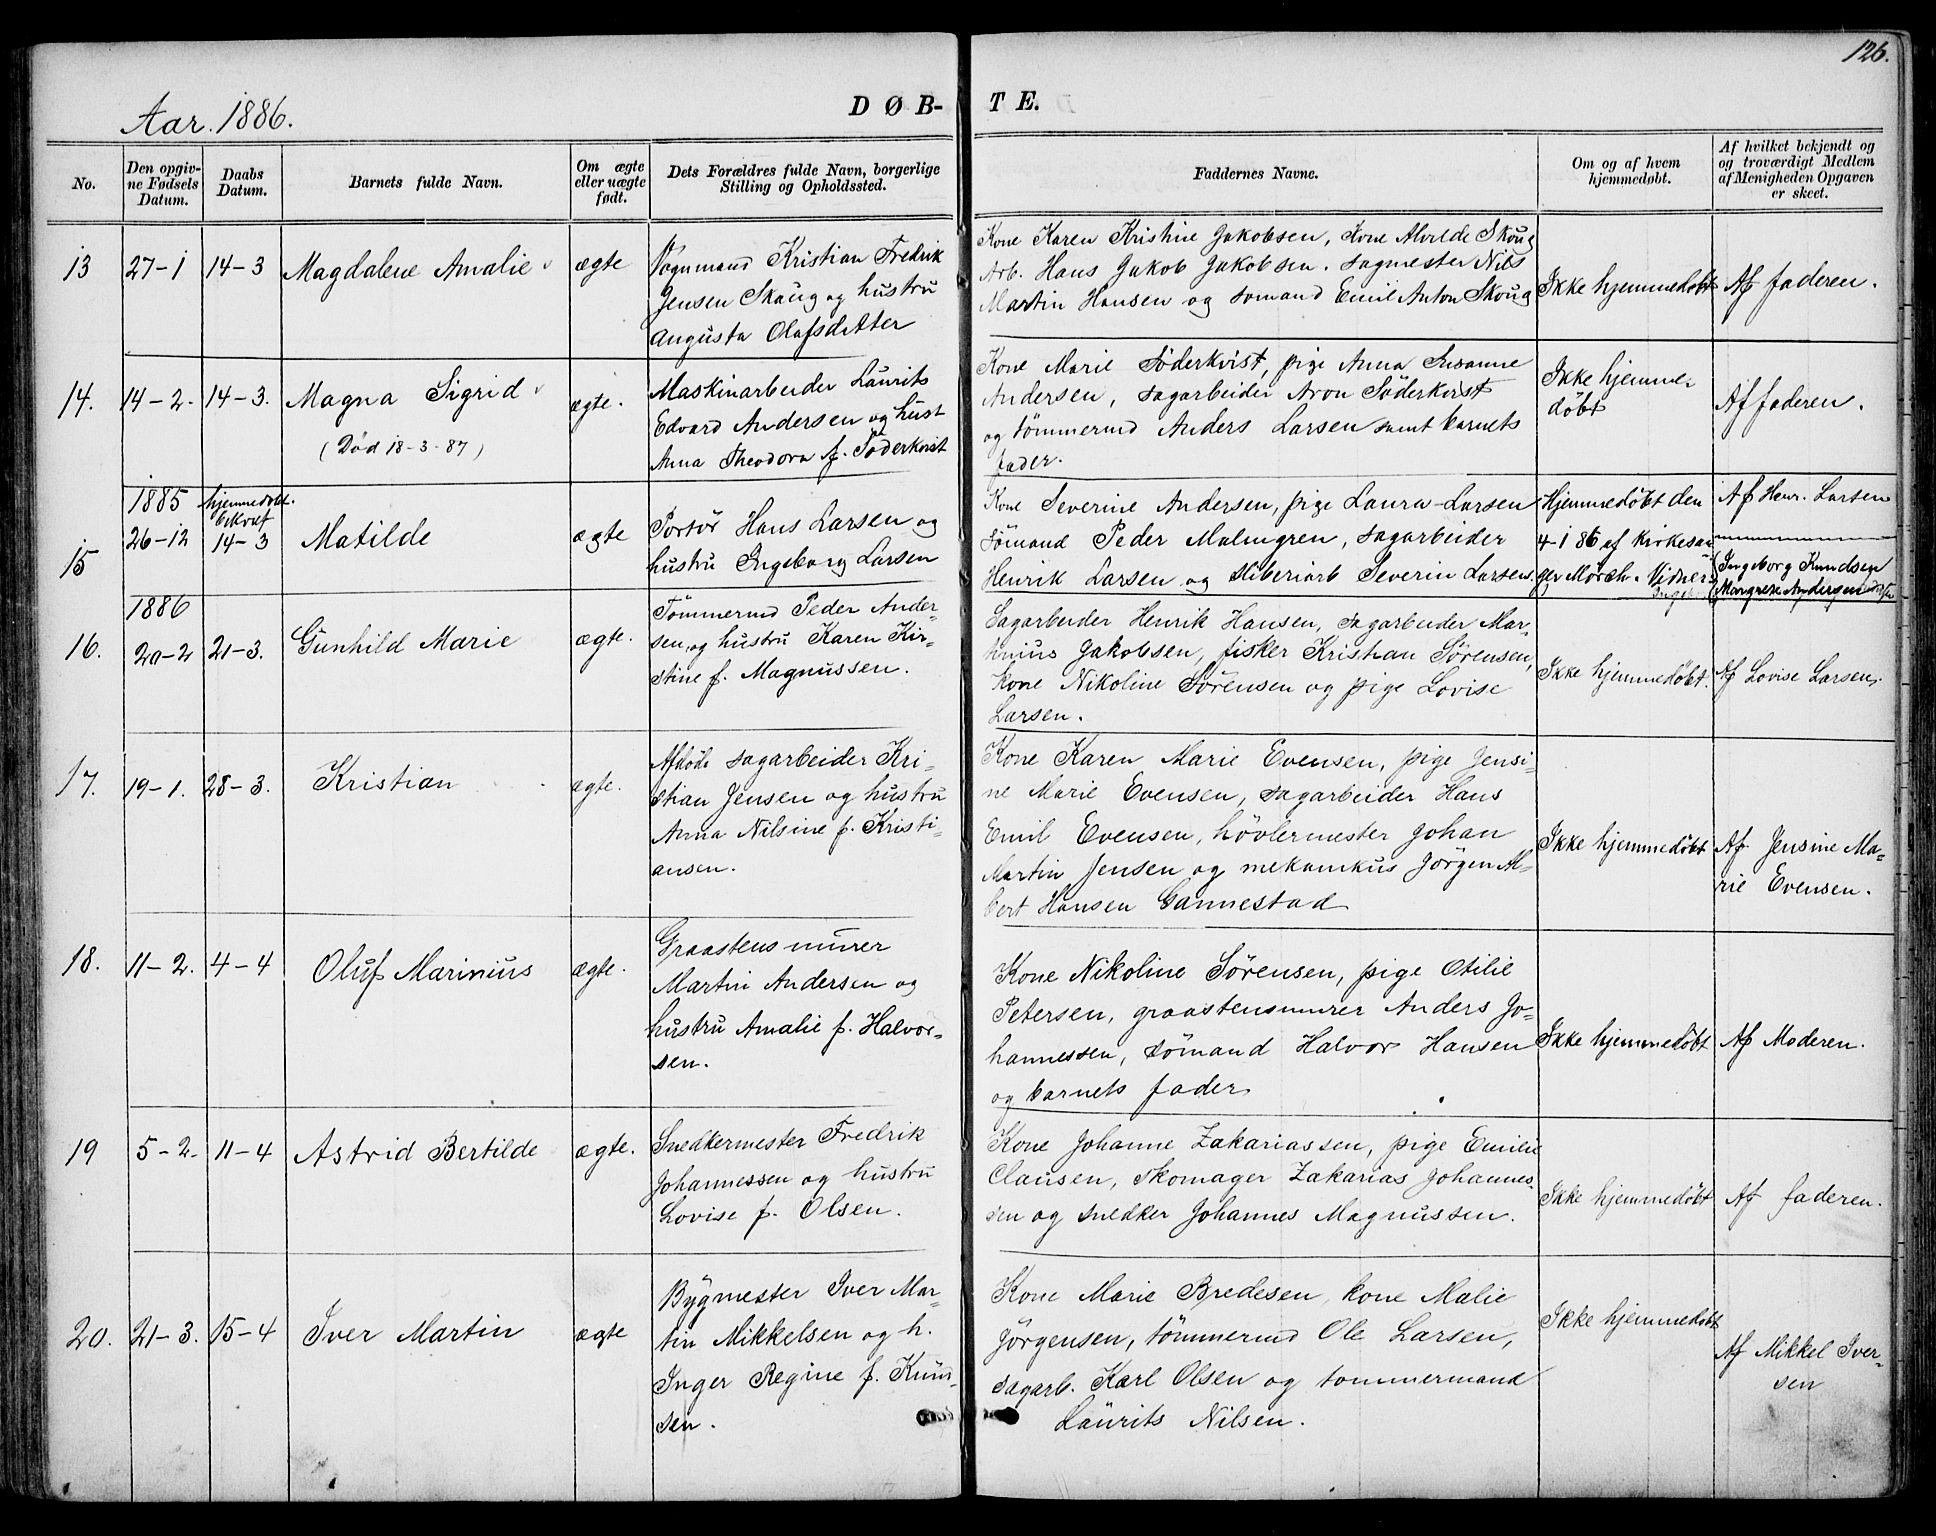 126.
Aar. 1886.
DØB-
TE.
No.
Den opgiv-
ne Fødsels
Datum.
Daabs
Datum.
Barnets fulde Navn.
Om ægte
eller uægte
født.
Dets Forældres fulde Navn, borgerlige
Stilling og Opholdssted.
Faddernes Navne.
Om og af hvem
hjemmedøbt.
Af hvilket bekjendt og
og troværdigt Medlem
af Menigheden Opgaven
er skeet.
13
27-1
14-3
Magdalene Amalie
ægte
Vognmand Kristian Fredrik
Jensen Skaug og hustru
Augusta Olafsdatter
Kone Karen Kristine Jakobsen, Kone Alvilde Skoug
Arb. Hans Jakob Jakobsen. sagmester Nils
Martin Hansen og sømand Emil Anton Skoug
Ikke hjemmedøbt
Af faderen.
14.
14-2.
14-3.
Magna Sigrid
(Død 18-3-87)
ægte.
Maskinarbeider Laurits
Edvard Andersen og hust
Anna Theodora f. Søderkvist
Kone Marie Söderkvist, pige Anna Susanne
Andersen, sagarbeider Aron Söderkvist
og tömmermd Anders Larsen samt barnets
fader.
Ikke hjemme-
døbt
Af faderen.
15
1885
26-12
hjemmedøbt.
bekræf
14-3
Matilde
ægte
Portör Hans Larsen og
hustru Ingeborg Larsen
Kone Severine Andersen, pige Laura Larsen
sömand Peder Malmgren, sagarbeider
Henrik Larsen og sliberiarb Severin Larsen.
Hjemmedøbt den
4-1 86 af kirkesan
ger Mørch. Vidner:
Af Henr. Larsen
Ingeborg Knudsen
Mangrete Andersen
16.
1886
20-2
21-3.
Gunhild Marie
ægte.
Tömmermd Peder Ander-
sen og hustru Karen Kir-
stine f. Magnussen.
Sagarbeider Henrik Hansen, sagarbeider Mar-
tinius Jakobsen, fisker Kristian Sörensen,
Kone Nikoline Sörensen og pige Lovise
Larsen.
Ikke hjemmedøbt.
Af Lovise Larsen.
17.
19-1.
28-3.
Kristian
ægte.
Afdöde sagarbeider Kri-
stian Jensen og hustru
Anna Nilsine f. Kristi-
ansen.
Kone Karen Marie Evensen, pige Jensi-
ne Marie Evensen, sagarbeider Hans
Emil Evensen, hövlermester Johan
Martin Jensen og mekanikus Jörgen Al-
bert Hansen Gannestad
Ikke hjemmedøbt
Af Jensine Ma-
rie Evensen.
18.
11-2.
4-4
Oluf Marinius
ægte.
Graastensmurer
Martin Andersen og
hustru Amalie f. Halvor-
sen.
Kone Nikoline Sörensen, pige Otilie
Petersen, graastensmurer Anders Jo-
hannessen, sömand Halvor Hansen
og barnets fader
Ikke hjemmedöbt
Af Moderen.
19
5-2.
11-4
Astrid Bertilde
ægte.
Snedkermester Fredrik
Johannessen og hustru
Lovise f. Olsen.
Kone Johanne Zakariassen, pige Emilie
Clausen, skomager Zakarias Johannes-
sen og snedker Johannes Magnussen.
Ikke hjemmedøbt
Af faderen.
20.
21-3.
15-4
Iver Martin
ægte
Bygmester Iver Mar-
tin Mikkelsen og h.
Inger Regine f. Knud-
sen.
Kone Marie Bredesen, kone Malie
Jörgensen, tömmermd Ole Larsen,
sagarb. Karl Olsen og tommermand
Laurits Nilsen.
Ikke hjemmedøbt
Af Mikkel Iver-
sen